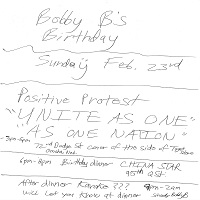 Bobby B's
Birthday
Sunday Feb. 23rd
Positive Protest
"UNITE AS ONE"
"AS ONE NATION"
3pm-6pm 72nd Dodge St corner of the side of
Omaha Neb.
6pm-8pm Birthday dinner CHINA STAR
90th Q St
After dinner Karaoke ??? 9pm-2am
will let you know at dinner